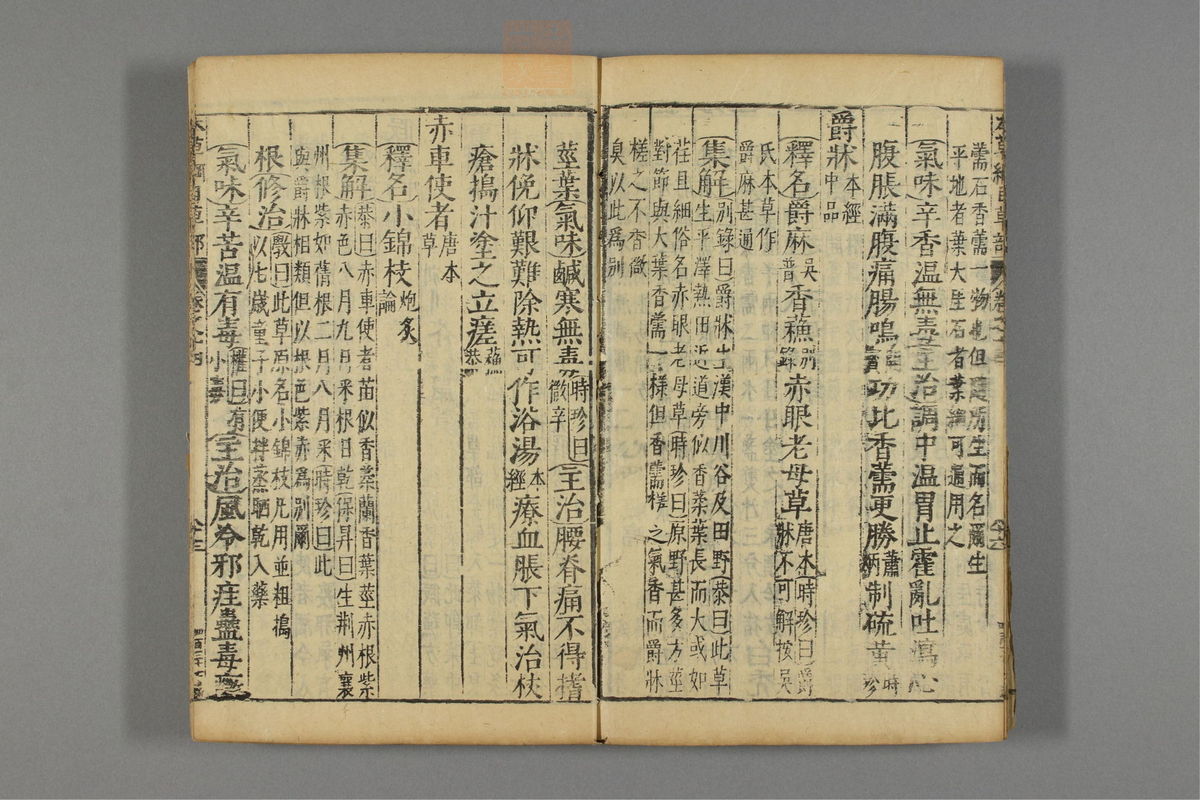 薷石香薷一物也但隨所生而名爾生
平地者葉大生石者葉細可通用之
氣味辛香溫無毒主治調中溫胃止霍亂吐瀉心
腹脹滿腹痛腸鳴功比香薷更勝蕭炳制硫黃時珍
爵牀本經中品
釋名爵麻吳普香蘇別錄赤眼老母草唐本時珍曰爵牀不可解按吳
氏本草作爵麻甚通
集解別錄曰爵牀生漢中川谷及田野恭曰此草
生平澤熟田近道旁似香菜葉長而大或如
荏且細俗名赤眼老母草時珍曰原野甚多方莖
對節與大葉香薷一樣但香薷搓之氣香而爵牀
搓之不香微
臭以此爲別
莖葉氣味鹹寒無毒時珍曰微辛主治腰脊痛不得著
牀俛仰艱難除熱可作浴湯本經療血脹下氣治杖
瘡搗汁塗之立瘥蘇恭
赤車使者唐本草
釋名小錦枝炮炙論
集解恭曰赤車使者苗似香菜蘭香葉莖赤根紫
赤色八月九月采根日乾保昇曰生荆州襄
州根紫如蒨根二月八月采時珍曰此
與爵牀相類但以根色紫赤爲別爾
根修治斅曰此草原名小錦枝凡用並粗搗
以七歲童子小便拌蒸晒乾入藥
氣味辛苦溫有毒權曰有小毒主治風冷邪疰蠱毒癥